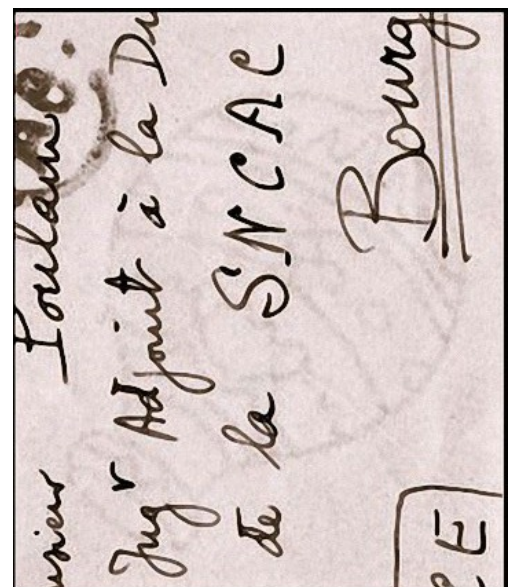 nsieur Poulain
Ingr Adjoint à la Di
de la SNCAC
Bourg
RE